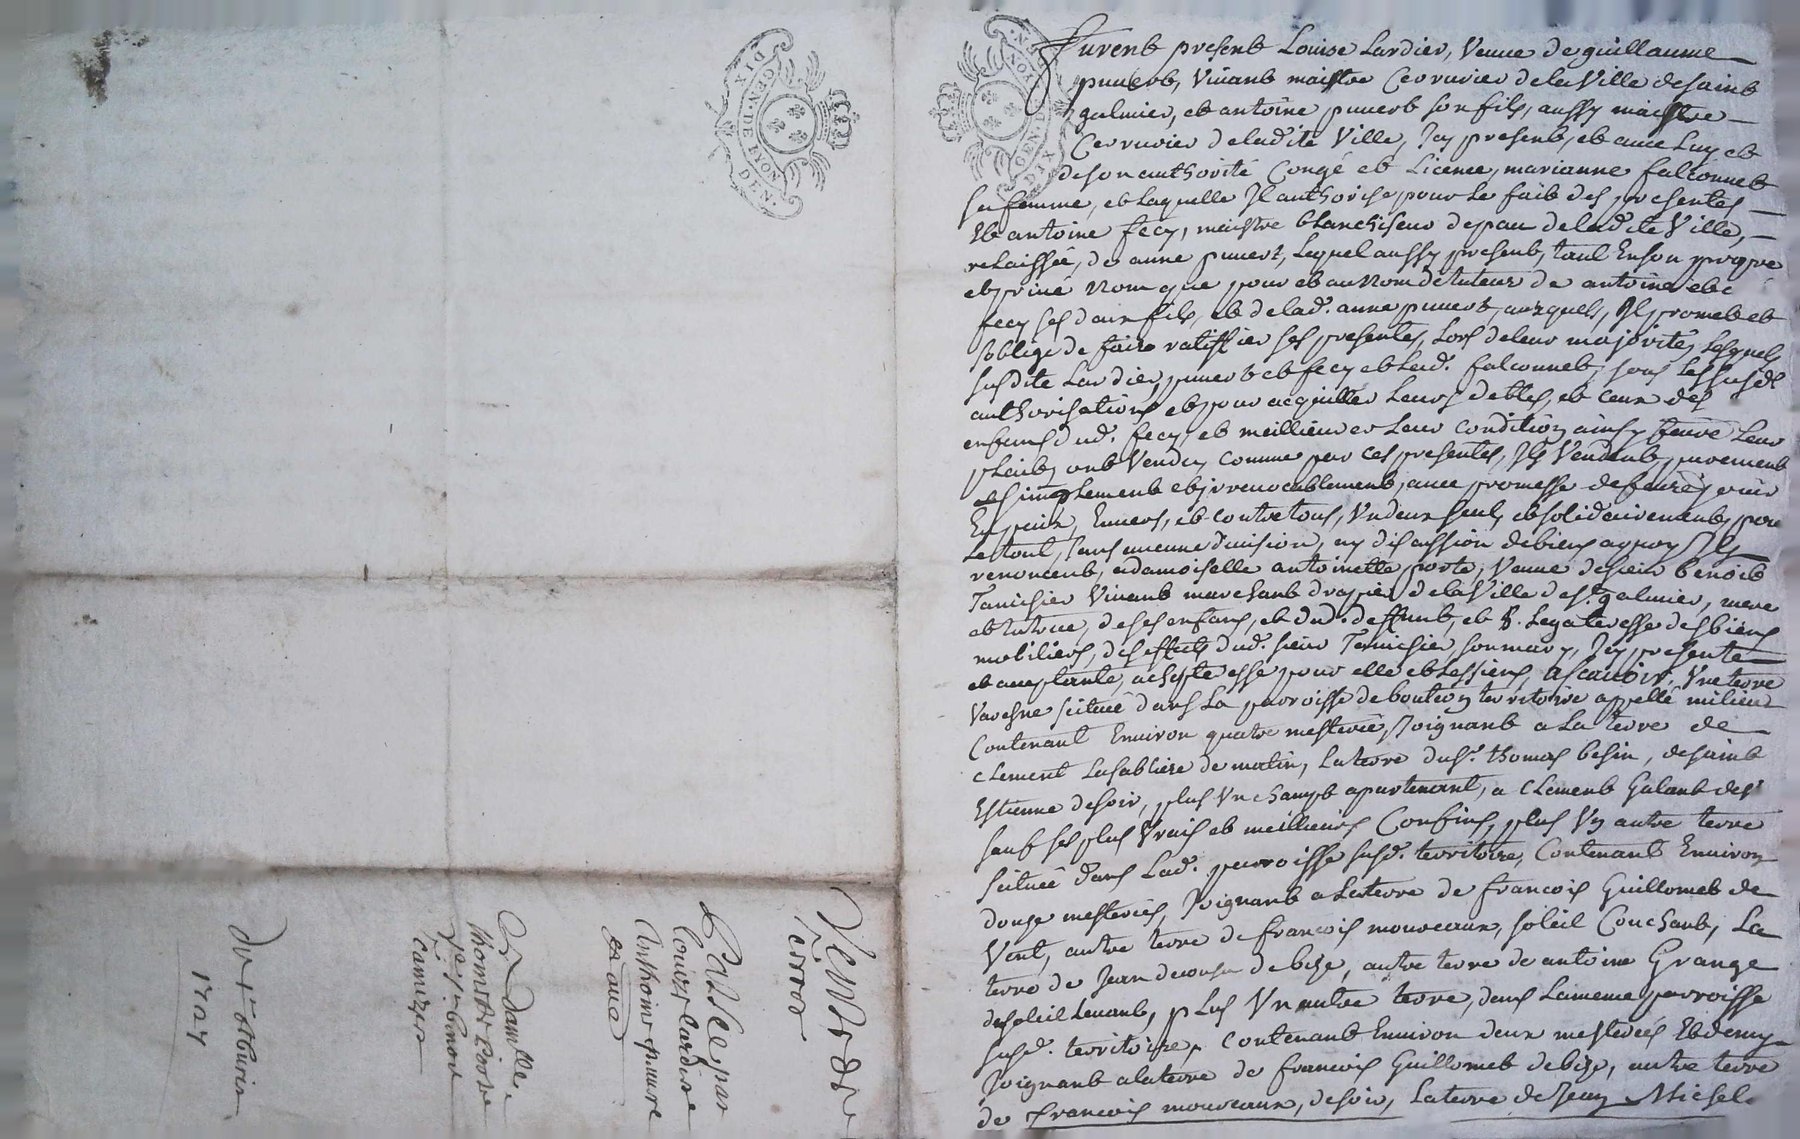 GEN. DE LYON
DIX DEN.
Vente de
terre
Passée par
Louize Lardiere
Anthoine puuere
et aue
A damlle.
thomette porte
ve. sr. benoit
tamizier
du 1 8bre
1707
GEN. DE LYON
DIX
Furent present Louise Lardier, veuue de guillaume
puuert, viuant maistre Cerrurier de la ville de saint
galmier, et antoine puuert son fils, aussy maistre
Cerrurier de ladite ville, Icy present, et auec Luy et
de son authorité Congé et Licence, marianne falconnet
sa femme, et laquelle Il authorise pour le fait des presentes
Et antoine fecy, maistre blanchiseur de peau de ladite ville,
relaissée, de anne puuert, Lequel aussy present, tant En son propre
et priué nom que pour et au nom de tuteur de antoine et
fecy ses deux fils, et de lad. anne puuert, auxquels, Il promet et
soblige de faire ratiffier ses presentes, Lors de leur majorité, Lesquels
susdite Lardier, puuert et fecy et Lad. falconnet, sous les susd.
authorisations et pour acquitter Leurs debtes, et ceux des
enfans dud. fecy, et meillieurer Leur condition ainsy faire Leur
plait, ont Vendu, comme par ces presentes, Ils Vendent, purement
et simplement et irreuocablement, auec promesse de faire jouir
En paix, Enuers, et contre tous, Un deux seul, et solidairement, pour
Le tout, sans aucune diuision, ny discussion de biens a quoy Ils
renoncent, a damoiselle antoinette porte, Veuue de sieur benoit
Tamisier Viuant marchant drapier de la Ville de st. galmier, mere
et tutrice, de ses enfans, et dud. deffunt, et Legateresse des biens
mobiliers, des effets dud. sieur Tamisier son mary, Icy presente
et acceptante, acheptresse pour elle et les siens, ascauoir, Une terre
Varesne scituée dans La parroisse de bouteon territoire appellé milieu
Contenant Enuiron quatre mesterée, Joignant a La terre de
clement Lasabliere de matin, La terre du sr. thomas besin, de saint
Estienne de soir, plus Un champt apartenant, a Clement Galant de
sauf ses plus Vrais et meillieurs Confins, plus Un autre terre
scituée dans Lad. parroisse susd. territoire, Contenant Enuiron
douze mesterées, Joignant a La terre de francois Guillomet de
Vent, autre terre de francois mourceaux, soleil Couchant, La
terre de Jean decousu de bize, autre terre de antoine Grange
de soleil Leuant, plus Un autre terre, dans La meme parroisse
susd. territoire, contenant Enuiron deux mesterées Et demy
Joignant a la terre de francois Guillomet de bize, autre terre
de francois mourceaux, de soir, La terre de Jean Michel